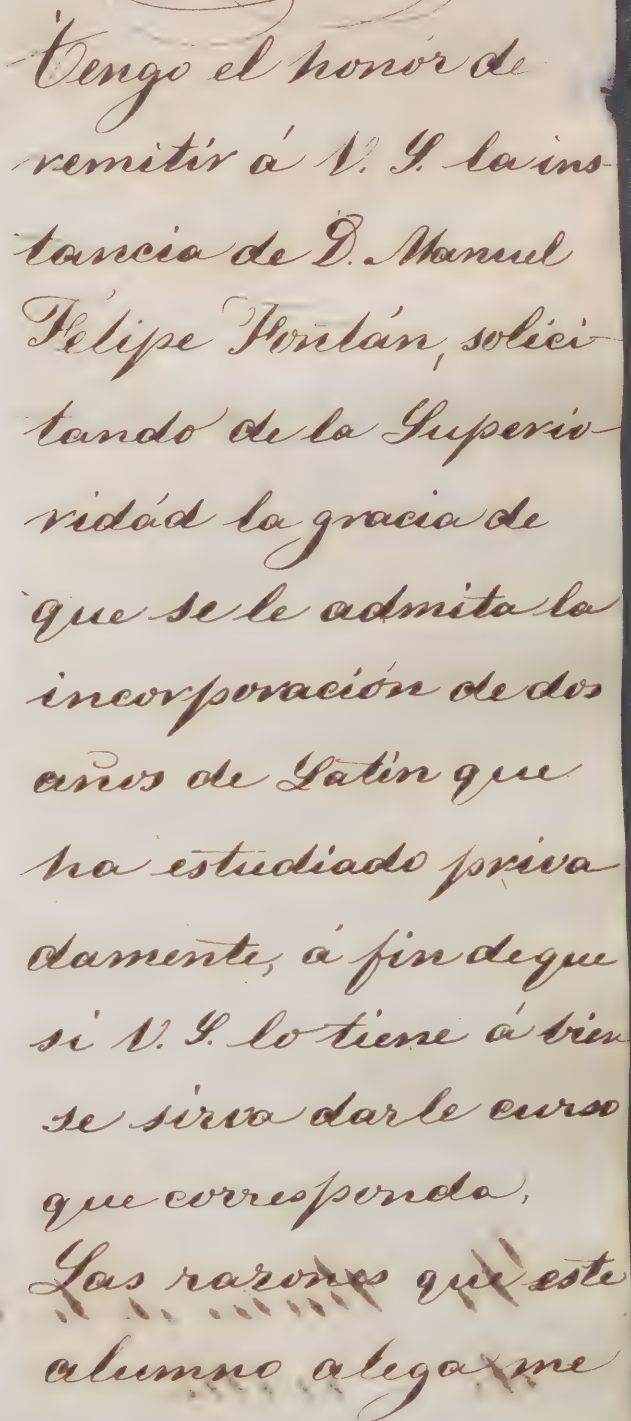 Tengo el honór de
remitír á V. S. la ins-
tancia de D. Manuel
Felipe Fontán, solici-
tando de la Superio-
ridád la gracia de
que se le admita la
incorporación de dos
años de Latín que
ha estudiado priva
damente, á fin de que
si V. S. lo tiene á bien
se sirva darle curso
que corresponda.
Las razones que este
alumno alega me